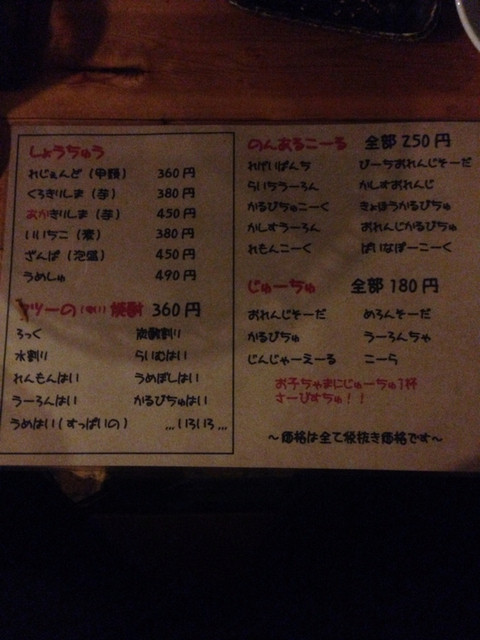 しょうちゅう
れじぇんど（甲類） 360円
くろきりしま（芋） 380円
あかきりしま（芋） 450円
いいちこ（麦） 380円
ざんぱ（泡盛） 450円
うめしゅ 490円
焼酎 360円
ろっく 炭酸割り
水割り らいむはい
れんもんはい うめぼしはい
うーろんはい かるぴちゅはい
うめはい（すっぱいの） …いろいろ…
のんあるこーる 全部250円
ぴーちおれんじそーだ
らいちうーろん かしすおれんじ
かるぴちゅこーく きょほうかるぴちゅ
かしすうーろん おれんじかるぴちゅ
れもんこーく ぱいなぽーこーく
じゅーちゅ 全部180円
おれんじそーだ めろんそーだ
かるぴちゅ うーろんちゃ
じんじゃーえーる こーら
お子ちゃまにじゅーちゅ1杯
さーびすちゅ！！
～価格は全て税抜き価格です～